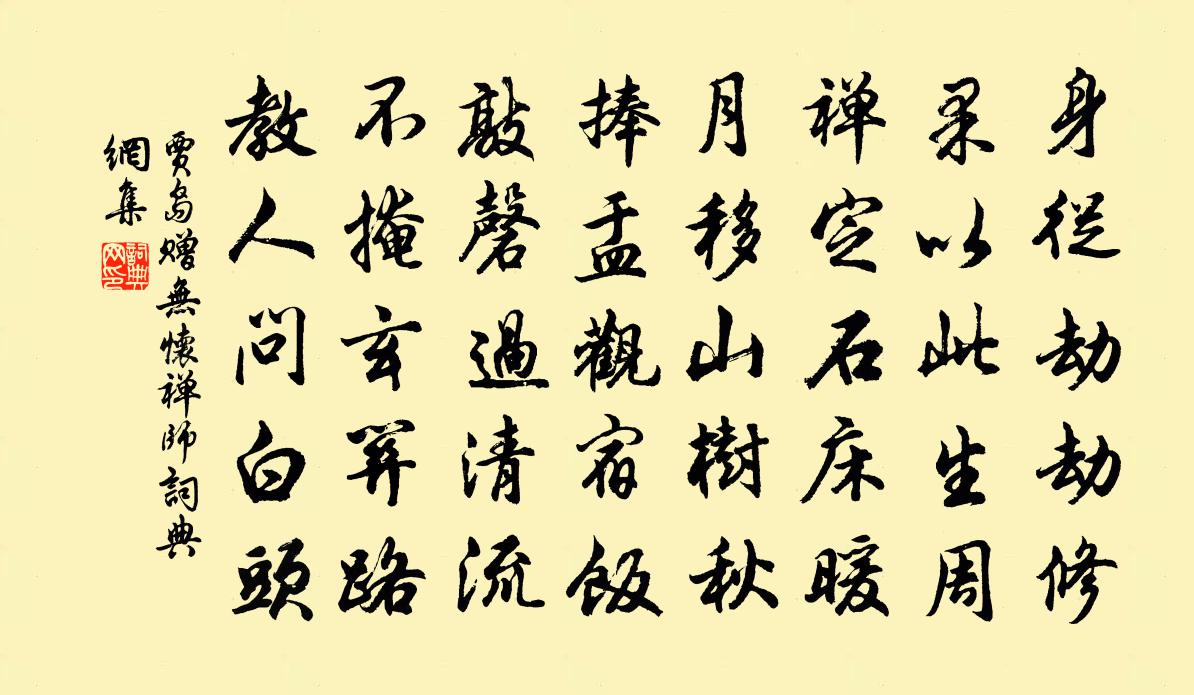 身從劫劫修
果以此生周
禅定石床暖
月移山樹秋
捧盂觀宿飯
敲磬過清流
不掩玄關路
教人問白頭
賈島贈無懷禅師詞典
網集
詞典
网印